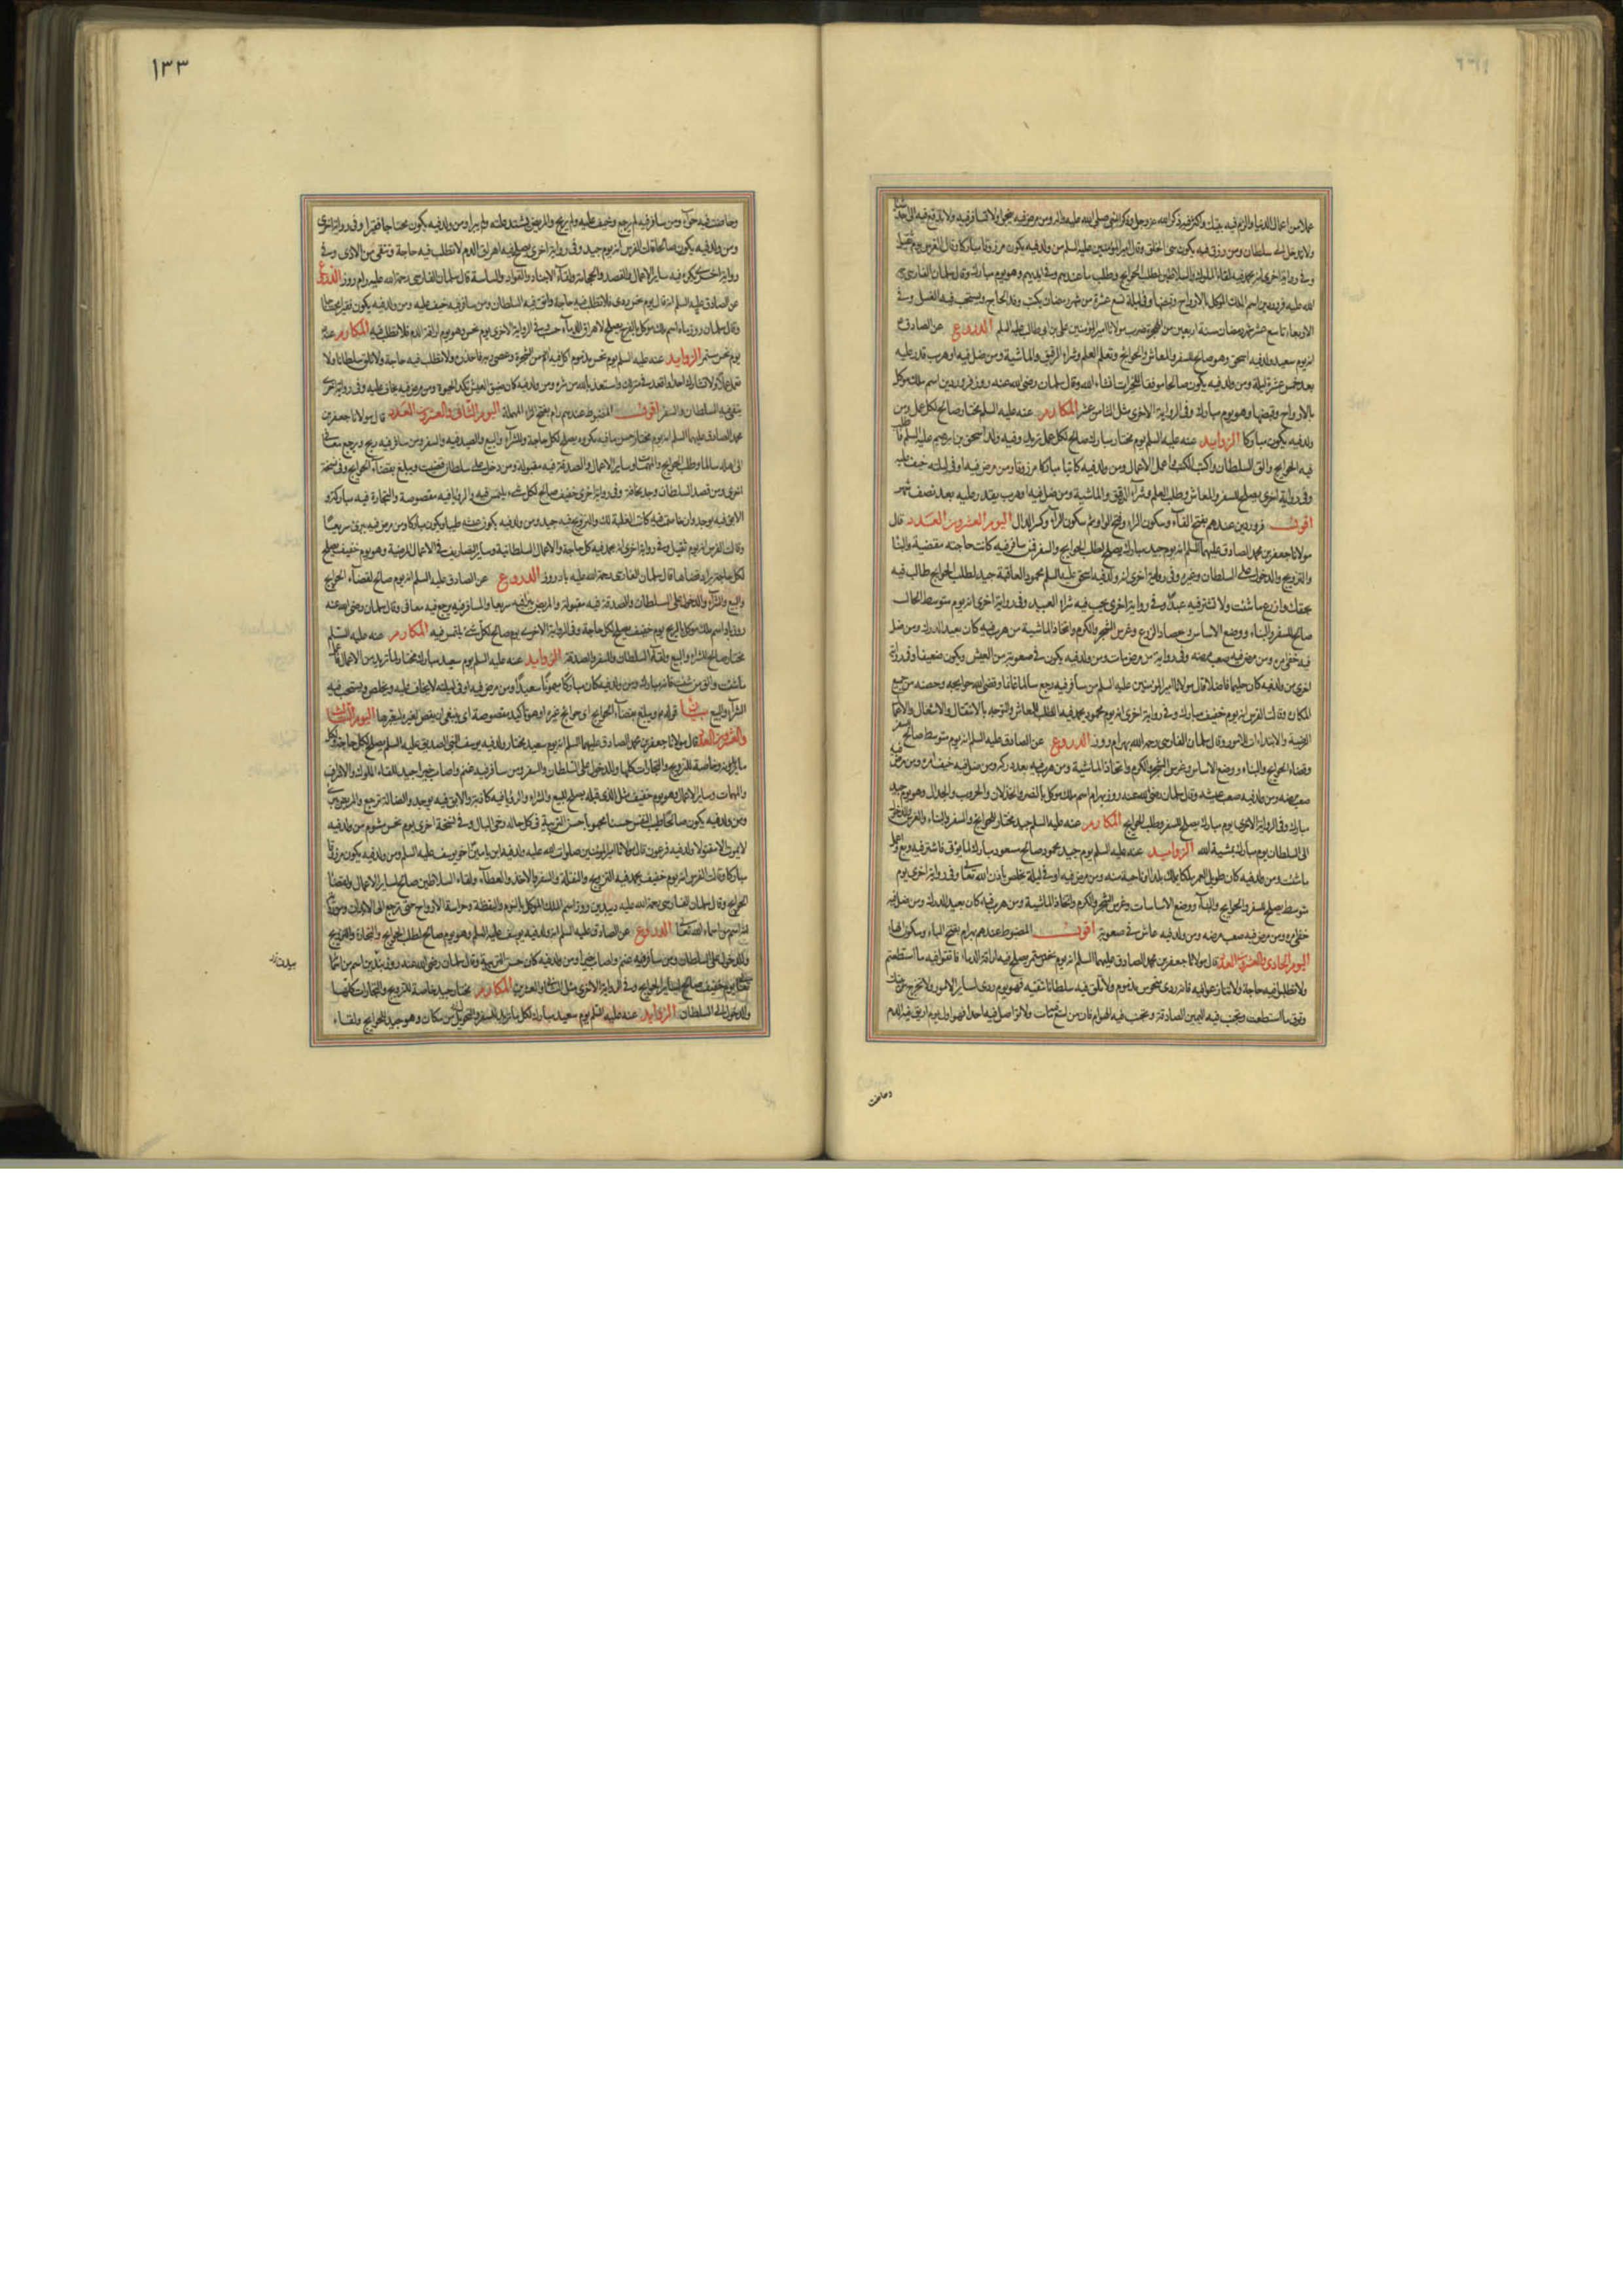 عملا من اعمال الدنيا والزم فيه بيتك واكثر فيه ذكر الله عز وجل وذكر النبي صلى الله عليه واله ومن مرض فيه ينجو ولا تسافر فيه ولا تدفع فيه الى احد شيئا
ولا تدخل على سلطان ومن رزق فيه يكون سيئ الخلق وقال امير المؤمنين عليه السلم من ولد فيه يكون مرزوقا مباركا وقال الفرس يوم ثقيل
وفي رواية اخرى انه يحمد فيه لقاء الملوك والسلاطين لطلب الحوايج وطلب ما عندهم وفي ايديهم وهو يوم مبارك وقال سلمان الفارسي رحمة
الله عليه فروردين اسم الملك الموكل بالارواح وقبضها وفي ليلة تسع عشرة من شهر رمضان يكتب وفد الحاج ويستحب فيه الغسل وفي
الاربعاء تاسع عشر شهر رمضان سنة اربعين من الهجرة ضرب مولانا امير المؤمنين علي بن ابي طالب عليه السلم الدروع عن الصادق ع
انه يوم سعيد ولد فيه اسحق وهو صالح للسفر والمعاش والحوايج وتعلم العلم وشراء الرقيق والماشية ومن ضل فيه او هرب قدر عليه
بعد خمس عشرة ليلة ومن ولد فيه يكون صالحا موفقا للخيرات انشاء الله وقال سلمان رضي الله عنه روز فروردين اسم ملك موكل
بالارواح وقبضها وهو يوم مبارك وفي الرواية الاخرى مثل الثامن عشر المكارم عنه عليه السلم مختار صالح لكل عمل ومن
ولد فيه يكون مباركا الزوايد عنه عليه السلم يوم مختار مبارك صالح لكل عمل تريد وفيه ولد اسحق بن ابرهيم عليه السلم فاطلب
فيه الحوايج والق السلطان واكتب الكتب واعمل الاعمال ومن ولد فيه كان كاتبا مباركا مرزوقا ومن مرض فيه او في ليلته خيف عليه
وفي رواية اخرى يصلح للسفر والمعاش وطلب العلم وشراء الرقيق والماشية ومن ضل فيه او هرب يقدر عليه بعد نصف شهر
اقول فروردين عندهم بفتح الفاء وسكون الراء وفتح الواو ثم سكون الراء وكسر الدال اليوم العشرون العدد قال
مولانا جعفر بن محمد الصادق عليهما السلم انه يوم جيد مبارك يصلح لطلب الحوايج والسفر فمن سافر فيه كانت حاجته مقضية والبناء
والتزويج والدخول على السلطان وغيره وفي رواية اخرى انه ولد فيه اسحق عليه السلم محمود العاقبة جيد لطلب الحوايج طالب فيه
بحقك وازرع ما شئت ولا تشتر فيه عبدا وفي رواية اخرى يجب فيه شراء العبيد وفي رواية اخرى انه يوم متوسط الحال
صالح للسفر والبناء ووضع الاساس وحصاد الزرع وغرس الشجر والكرم واتخاذ الماشية من هرب فيه كان بعيد الدرك ومن ضل
فيه خفي امره ومن مرض فيه صعب مرضه وفي رواية من مرض مات ومن ولد فيه يكون في صعوبة من العيش ويكون ضعيفا وفي رواية
اخرى من ولد فيه كان حليما فاضلا قال مولانا امير المؤمنين عليه السلم من سافر فيه رجع سالما غانما وقضى الله حوايجه وحصنه من جميع
المكاره وقالت الفرس انه يوم خفيف مبارك وفي رواية اخرى انه يوم محمود يحمد فيه الطلب للمعاش والتوجه بالانتقال والاشغال والاعمال
الرضية والابتداءات للامور وقال سلمان الفارسي رحمه الله بهرام روز الدروع عن الصادق عليه السلم انه يوم متوسط صالح للسفر
وقضاء الحوايج والبناء ووضع الاساس وغرس الشجر والكرم واتخاذ الماشية ومن هرب فيه بعد دركه ومن ضل فيه خفي امره ومن مرض فيه
صعب مرضه ومن ولد فيه صعب عيشه وقال سلمان رضي الله عنه روز بهرام اسم ملك موكل بالنصر والخذلان والحروب والجدال وهو يوم جيد
مبارك وفي الرواية الاخرى يوم مبارك يصلح للسفر وطلب الحوايج المكارم عنه عليه السلم جيد مختار للحوايج والسفر والبناء والغرس والدخول
الى السلطان يوم مبارك بمشية الله الزوايد عنه عليه السلم يوم جيد محمود صالح مسعود مبارك لما يؤتى فاشتر فيه وبع واعمل
ما شئت ومن ولد فيه كان طويل العمر ملكا يملك بلدا او ناحية منه ومن مرض فيه او في ليلته يخلص باذن الله تعالى وفي رواية اخرى يوم
متوسط يصلح للسفر والحوايج والبناء ووضع الاساسات وغرس الشجر والكرم واتخاذ الماشية ومن هرب فيه كان بعيد الدرك ومن ضل فيه
خفي امره ومن مرض فيه صعب مرضه ومن ولد فيه عاش في صعوبة اقول المضبوط عندهم بهرام بفتح الباء وسكون الهاء
اليوم الحادي والعشرون العدد قال مولانا جعفر بن محمد الصادق عليهما السلم انه يوم نحس مستمر يصلح فيه اراقة الدماء فاتقوا فيه ما استطعتم
ولا تطلبوا فيه حاجة ولا تنازعوا فيه فانه ردي منحوس مذموم ولا تلق فيه سلطانا تتقيه فهو يوم ردي لساير الامور ولا تخرج من بيتك
وتوق ما استطعت وتجنب فيه اليمين الصادقة وتجنب فيه الهوام فان من لسع مات ولا تواصل فيه احدا فهو اول يوم اريق فيه الدم
وحاضت
١٣٣
وحاضت فيه حوا ومن سافر فيه لم يرجع وخيف عليه ولم يربح والمريض تشتد علته ولم يبرا ومن ولد فيه يكون محتاجا فقيرا وفي رواية اخرى
ومن ولد فيه يكون صالحا قالت الفرس انه يوم جيد وفي رواية اخرى يصلح فيه اهراق الدم لا تطلب فيه حاجة وتتقي من الاذى وفي
رواية اخرى يكره فيه ساير الاعمال والفصد والحجامة ولقاء الاجناد والقواد والساسة قال سلمان الفارسي رحمة الله عليه رام روز الدروع
عن الصادق عليه السلم انه قال يوم نحس ردي فلا تطلب فيه حاجة واتق فيه السلطان ومن سافر فيه خيف عليه ومن ولد فيه يكون فقيرا محتاجا
وقال سلمان روز ماه اسم ملك موكل بالفرح يصلح لاهراق الدماء حسب وفي الرواية الاخرى يوم نحس وهو يوم اراقة الدم فلا تطلب فيه المكارم عنه
يوم نحس مستمر الزوايد عنه عليه السلم يوم نحس مذموم اكل فيه ادم من الشجرة وعصى ربه فاحذره ولا تطلب فيه حاجة ولا تلق سلطانا ولا
تعمل عملا ولا تشارك احدا واقعد في منزلك واستعذ بالله من شره ومن ولد فيه كان ضيق العيش نكد الحيوة ومن مرض فيه يخاف عليه وفي رواية اخرى
يتقى فيه السلطان والسفر اقول المضبوط عندهم رام بفتح الراء المهملة اليوم الثاني والعشرون العدد قال مولانا جعفر بن
محمد الصادق عليهما السلم انه يوم مختار حسن ما فيه مكروه يصلح لكل حاجة وللشراء والبيع والصيد فيه والسفر ومن سافر فيه ربح ويرجع معافى
الى اهله سالما وطلب الحوايج والمهمات وساير الاعمال والصدقة فيه مقبولة ومن دخل على سلطان قضيت ويبلغ بقضاء الحوايج وفي نسخة
اخرى ومن قصد السلطان وجد مخافة وفي رواية اخرى خفيف صالح لكل شيء يلتمس فيه والرؤيا فيه مقصوصة والتجارة فيه مباركة و
الابق فيه يوجد وان خاصمت فيه كانت الغلبة لك والتزويج فيه جيد ومن ولد فيه يكون عيشه طيبا ويكون مباركا ومن مرض فيه يبرئ سريعا
وقالت الفرس انه يوم ثقيل وفي رواية اخرى انه يحمد فيه كل حاجة والاعمال السلطانية وساير التصاريف في الاعمال المرضية وهو يوم خفيف يصلح
لكل حاجة يراد قضاها قال سلمان الفارسي رحمة الله عليه باد روز الدروع عن الصادق عليه السلم انه يوم صالح لقضاء الحوايج
والبيع والشراء والدخول على السلطان والصدقة فيه مقبولة والمريض يبرأ فيه سريعا والمسافر فيه يرجع فيه معافى وقال سلمان رضي الله عنه
روز باد اسم ملك موكل بالريح يوم خفيف يصلح لكل حاجة وفي الرواية الاخرى يوم صالح لكل شيء يلتمس فيه المكارم عنه عليه السلم
مختار صالح للشراء والبيع ولقاء السلطان والسفر والصدقة الزوايد عنه عليه السلم يوم سعيد مبارك مختار لما تريد من الاعمال فاعمل
ما شئت والق من شئت فانه مبارك ومن ولد فيه كان مباركا ميمونا سعيدا ومن مرض فيه او في ليلته لا يخاف عليه ويخلص ويستحب فيه
الشراء والبيع بيان قوله ع ويبلغ بقضاء الحوايج اي حوايج غيره او هو تاكيد مقصوصة اي ينبغي ان يقص لغيره ليعبرها اليوم الثالث
والعشرون العدد قال مولانا جعفر بن محمد الصادق عليهما السلم انه يوم سعيد مختار ولد فيه يوسف النبي الصديق عليه السلم يصلح لكل حاجة ولكل
ما يريدونه وخاصة للتزويج والتجارات كلها وللدخول على السلطان والسفر ومن سافر فيه غنم واصاب خيرا جيد للقاء الملوك والاشراف
والمهمات وساير الاعمال وهو يوم خفيف مثل الذي قبله يصلح للبيع والشراء والرؤيا فيه كاذبة والابق فيه يوجد والضالة ترجع والمريض يبرئ
ومن ولد فيه يكون صالحا طيب النفس حسنا محبوبا حسن التربية في كل حاله رخي البال وفي نسخة اخرى يوم نحس مشوم من ولد فيه
لا يموت الا مقتولا ولد فيه فرعون قال مولانا امير المؤمنين صلوات الله عليه ولد فيه ابن يامين اخو يوسف عليه السلم ومن ولد فيه يكون مرزوقا
مباركا وقالت الفرس انه يوم خفيف يحمد فيه التزويج والنقلة والسفر والاخذ والعطاء ولقاء السلاطين صالح لساير الاعمال وقضاء
الحوايج وقال سلمان الفارسي رحمة الله عليه ديبدين روز اسم الملك الموكل بالنوم واليقظة وحراسة الارواح حتى ترجع الى الابدان وفي رواية
انه اسم من اسماء الله تعالى الدروع عن الصادق عليه السلم انه ولد فيه يوسف عليه السلم وهو يوم صالح لطلب الحوايج والتجارة والتزويج
والدخول على السلطان ومن سافر فيه غنم واصاب خيرا ومن ولد فيه كان حسن التربية وقال سلمان رضي الله عنه روز بدين اسم من اسماء
تعالى يوم خفيف صالح لساير الحوايج وفي الرواية الاخرى مثل الثاني والعشرين المكارم مختار جيد خاصة للتزويج والتجارات كلها
والدخول الى السلطان الزوايد عنه عليه السلم يوم سعيد مبارك لكل ما تريد للسفر والتحويل من مكان وهو جيد للحوايج ولقاء